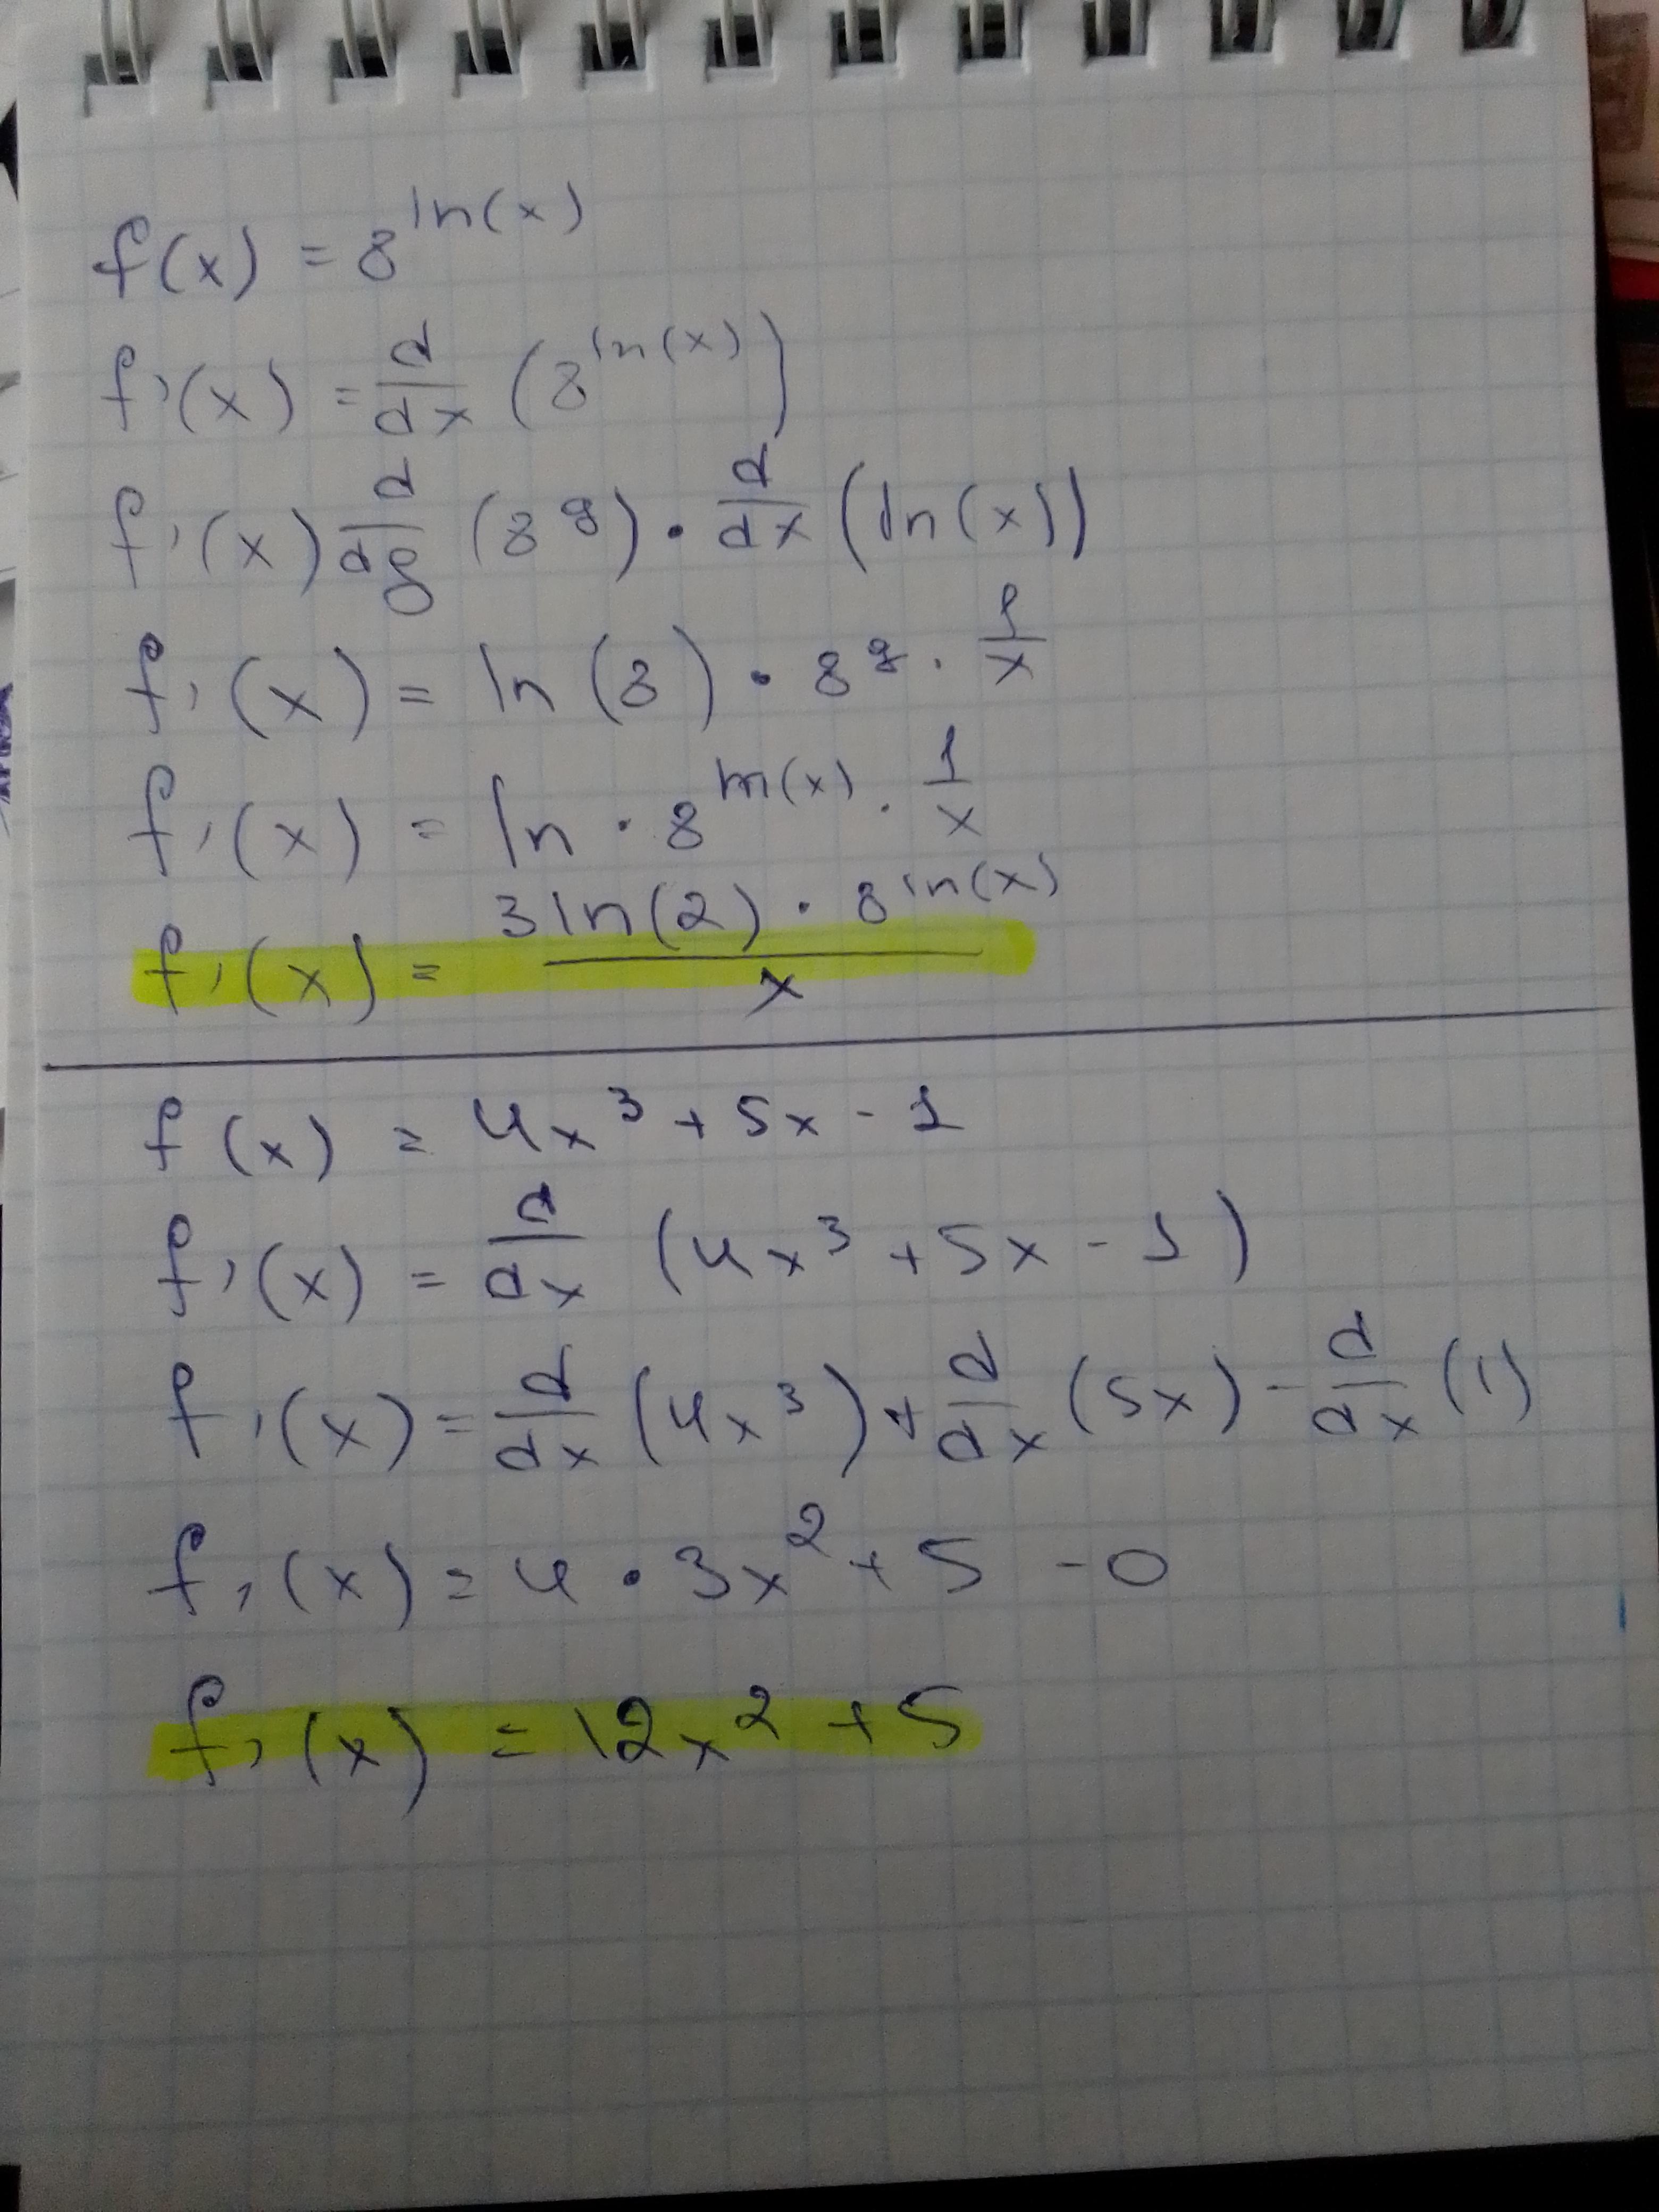 f(x) = 8^ln(x)
f'(x) = d/dx (8^ln(x))
f'(x) d/dg (8^g) · d/dx (ln(x))
f'(x) = ln(8) · 8^g · 1/x
f'(x) = ln · 8^ln(x) · 1/x
f'(x) = 3ln(2) · 8^ln(x) / x
f(x) = 4x³ + 5x - 1
f'(x) = d/dx (4x³ + 5x - 1)
f'(x) = d/dx (4x³) + d/dx (5x) - d/dx (1)
f'(x) = 4 · 3x² + 5 - 0
f'(x) = 12x² + 5